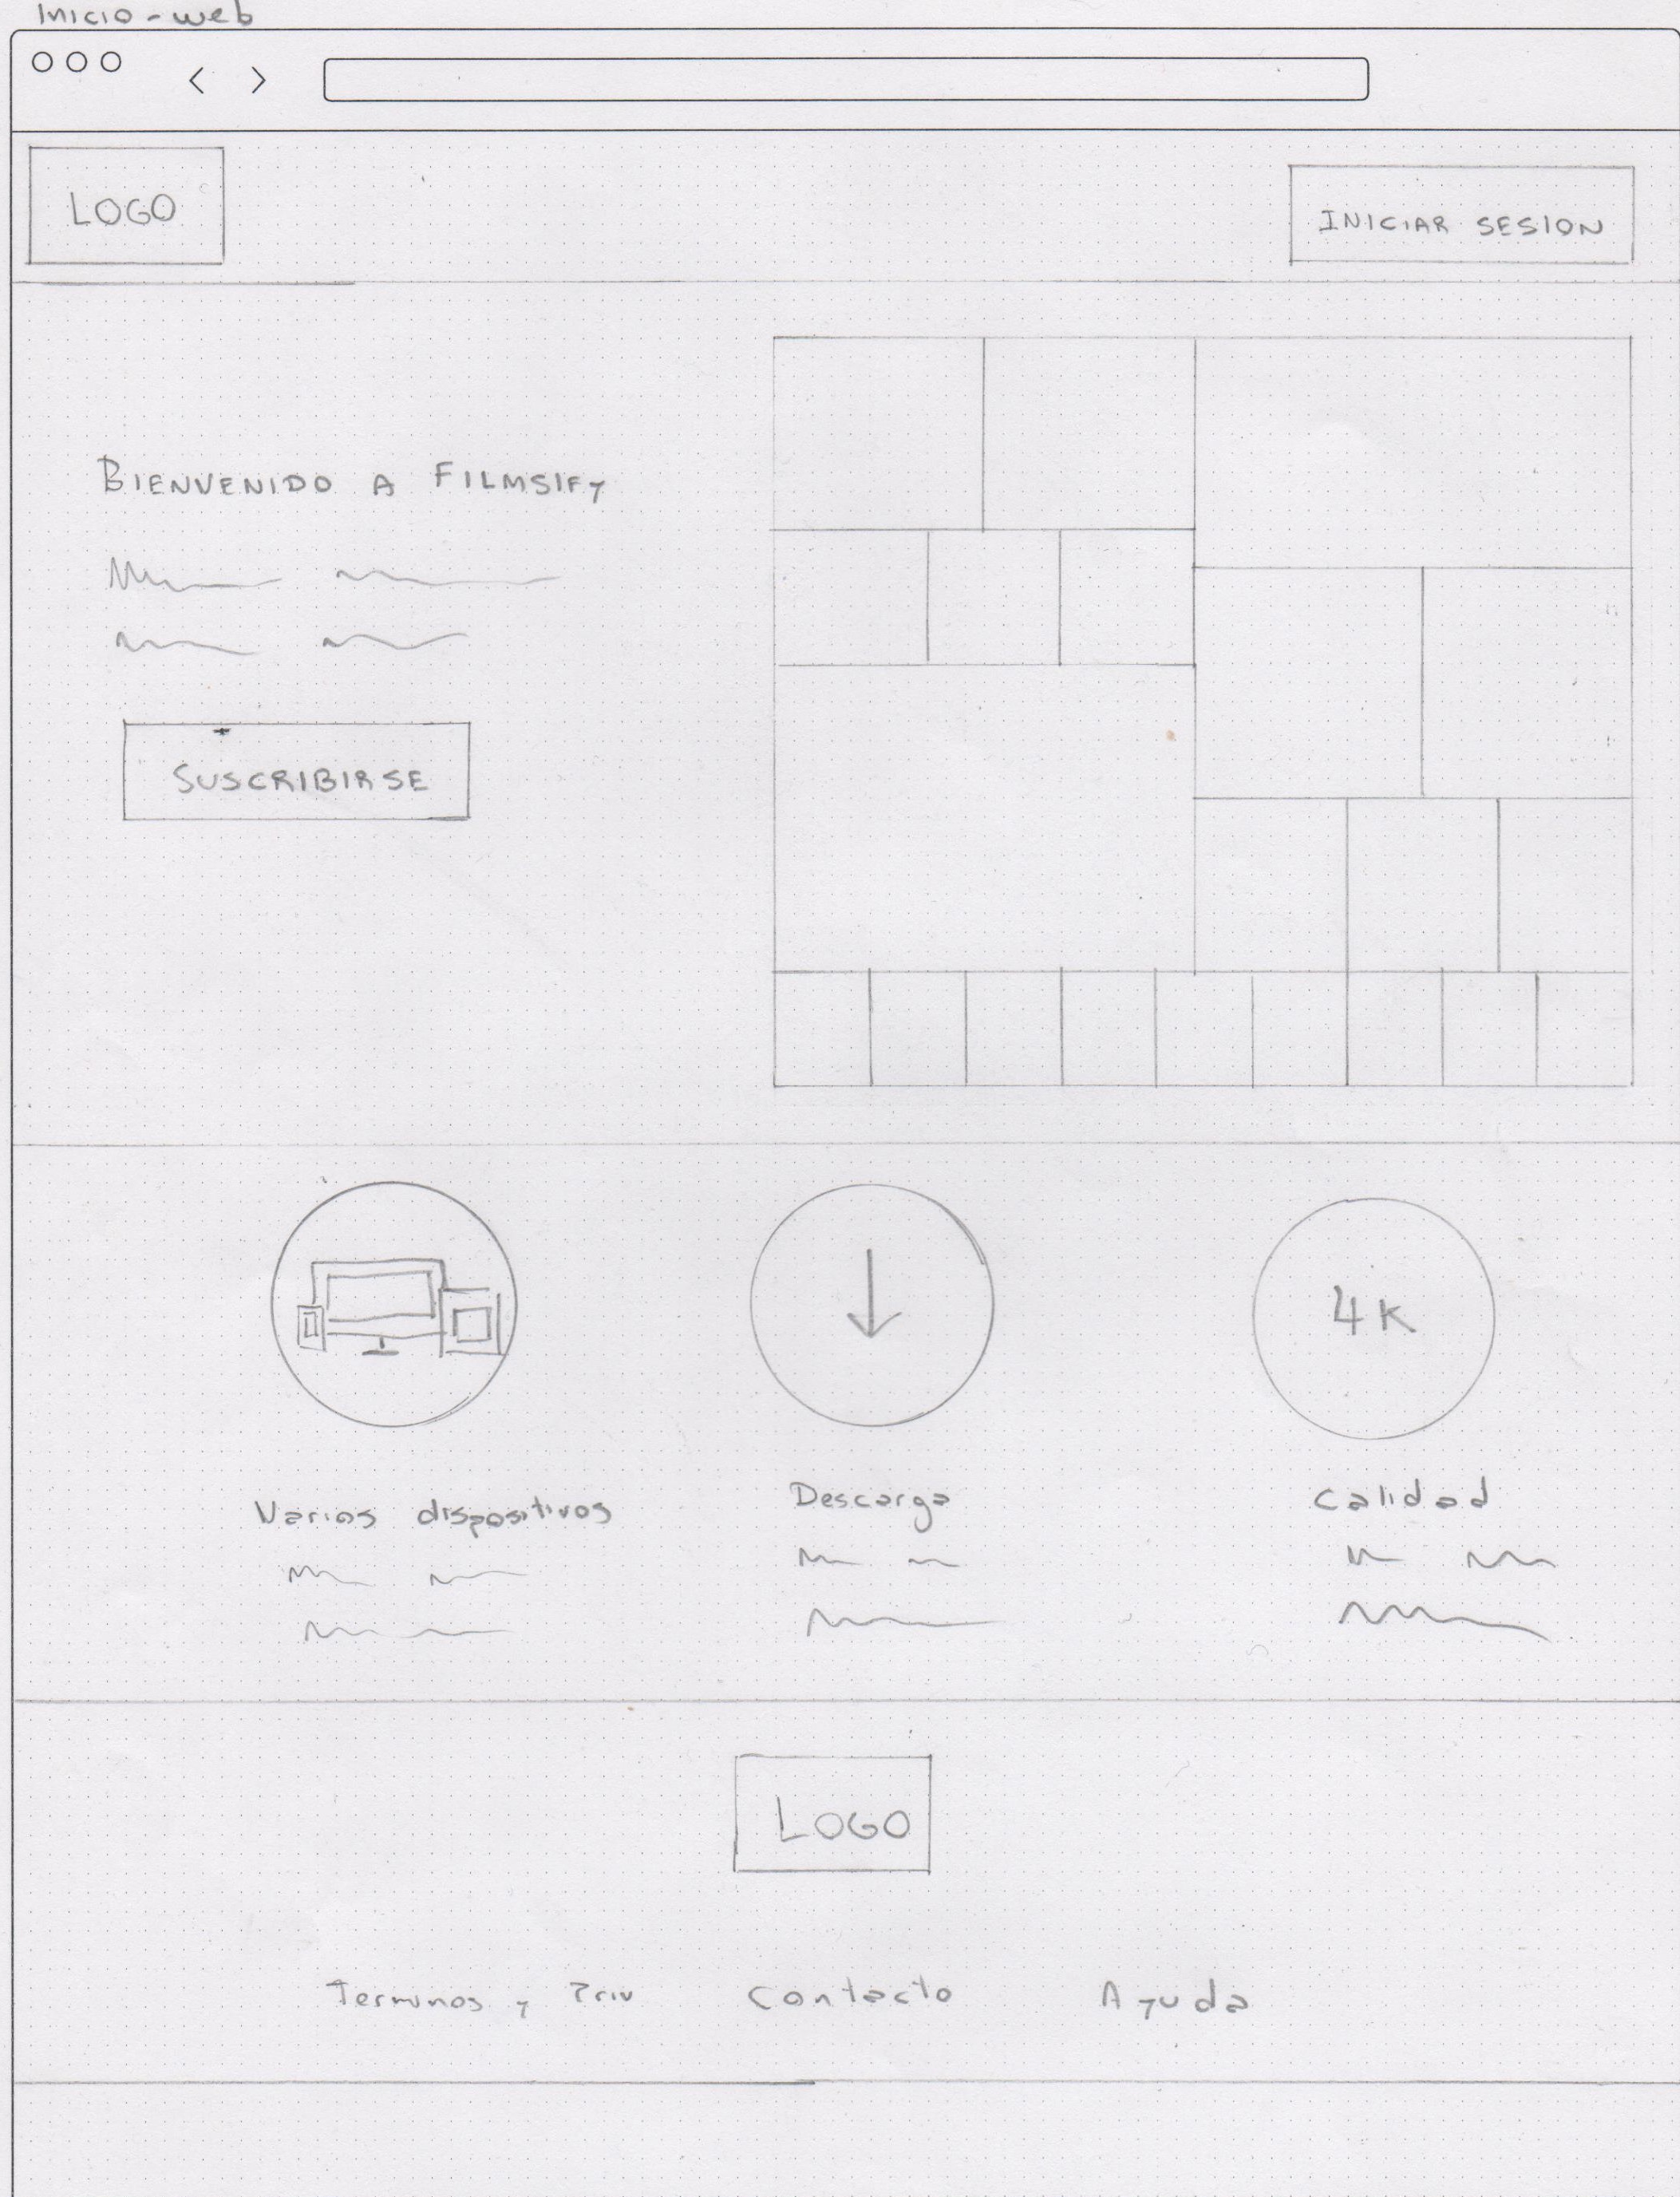 Inicio - web
LOGO
INICIAR SESION
BIENVENIDO A FILMSIFY
SUSCRIBIRSE
4K
Varios dispositivos
Descarga
Calidad
LOGO
Terminos y Priv
Contacto
Ayuda